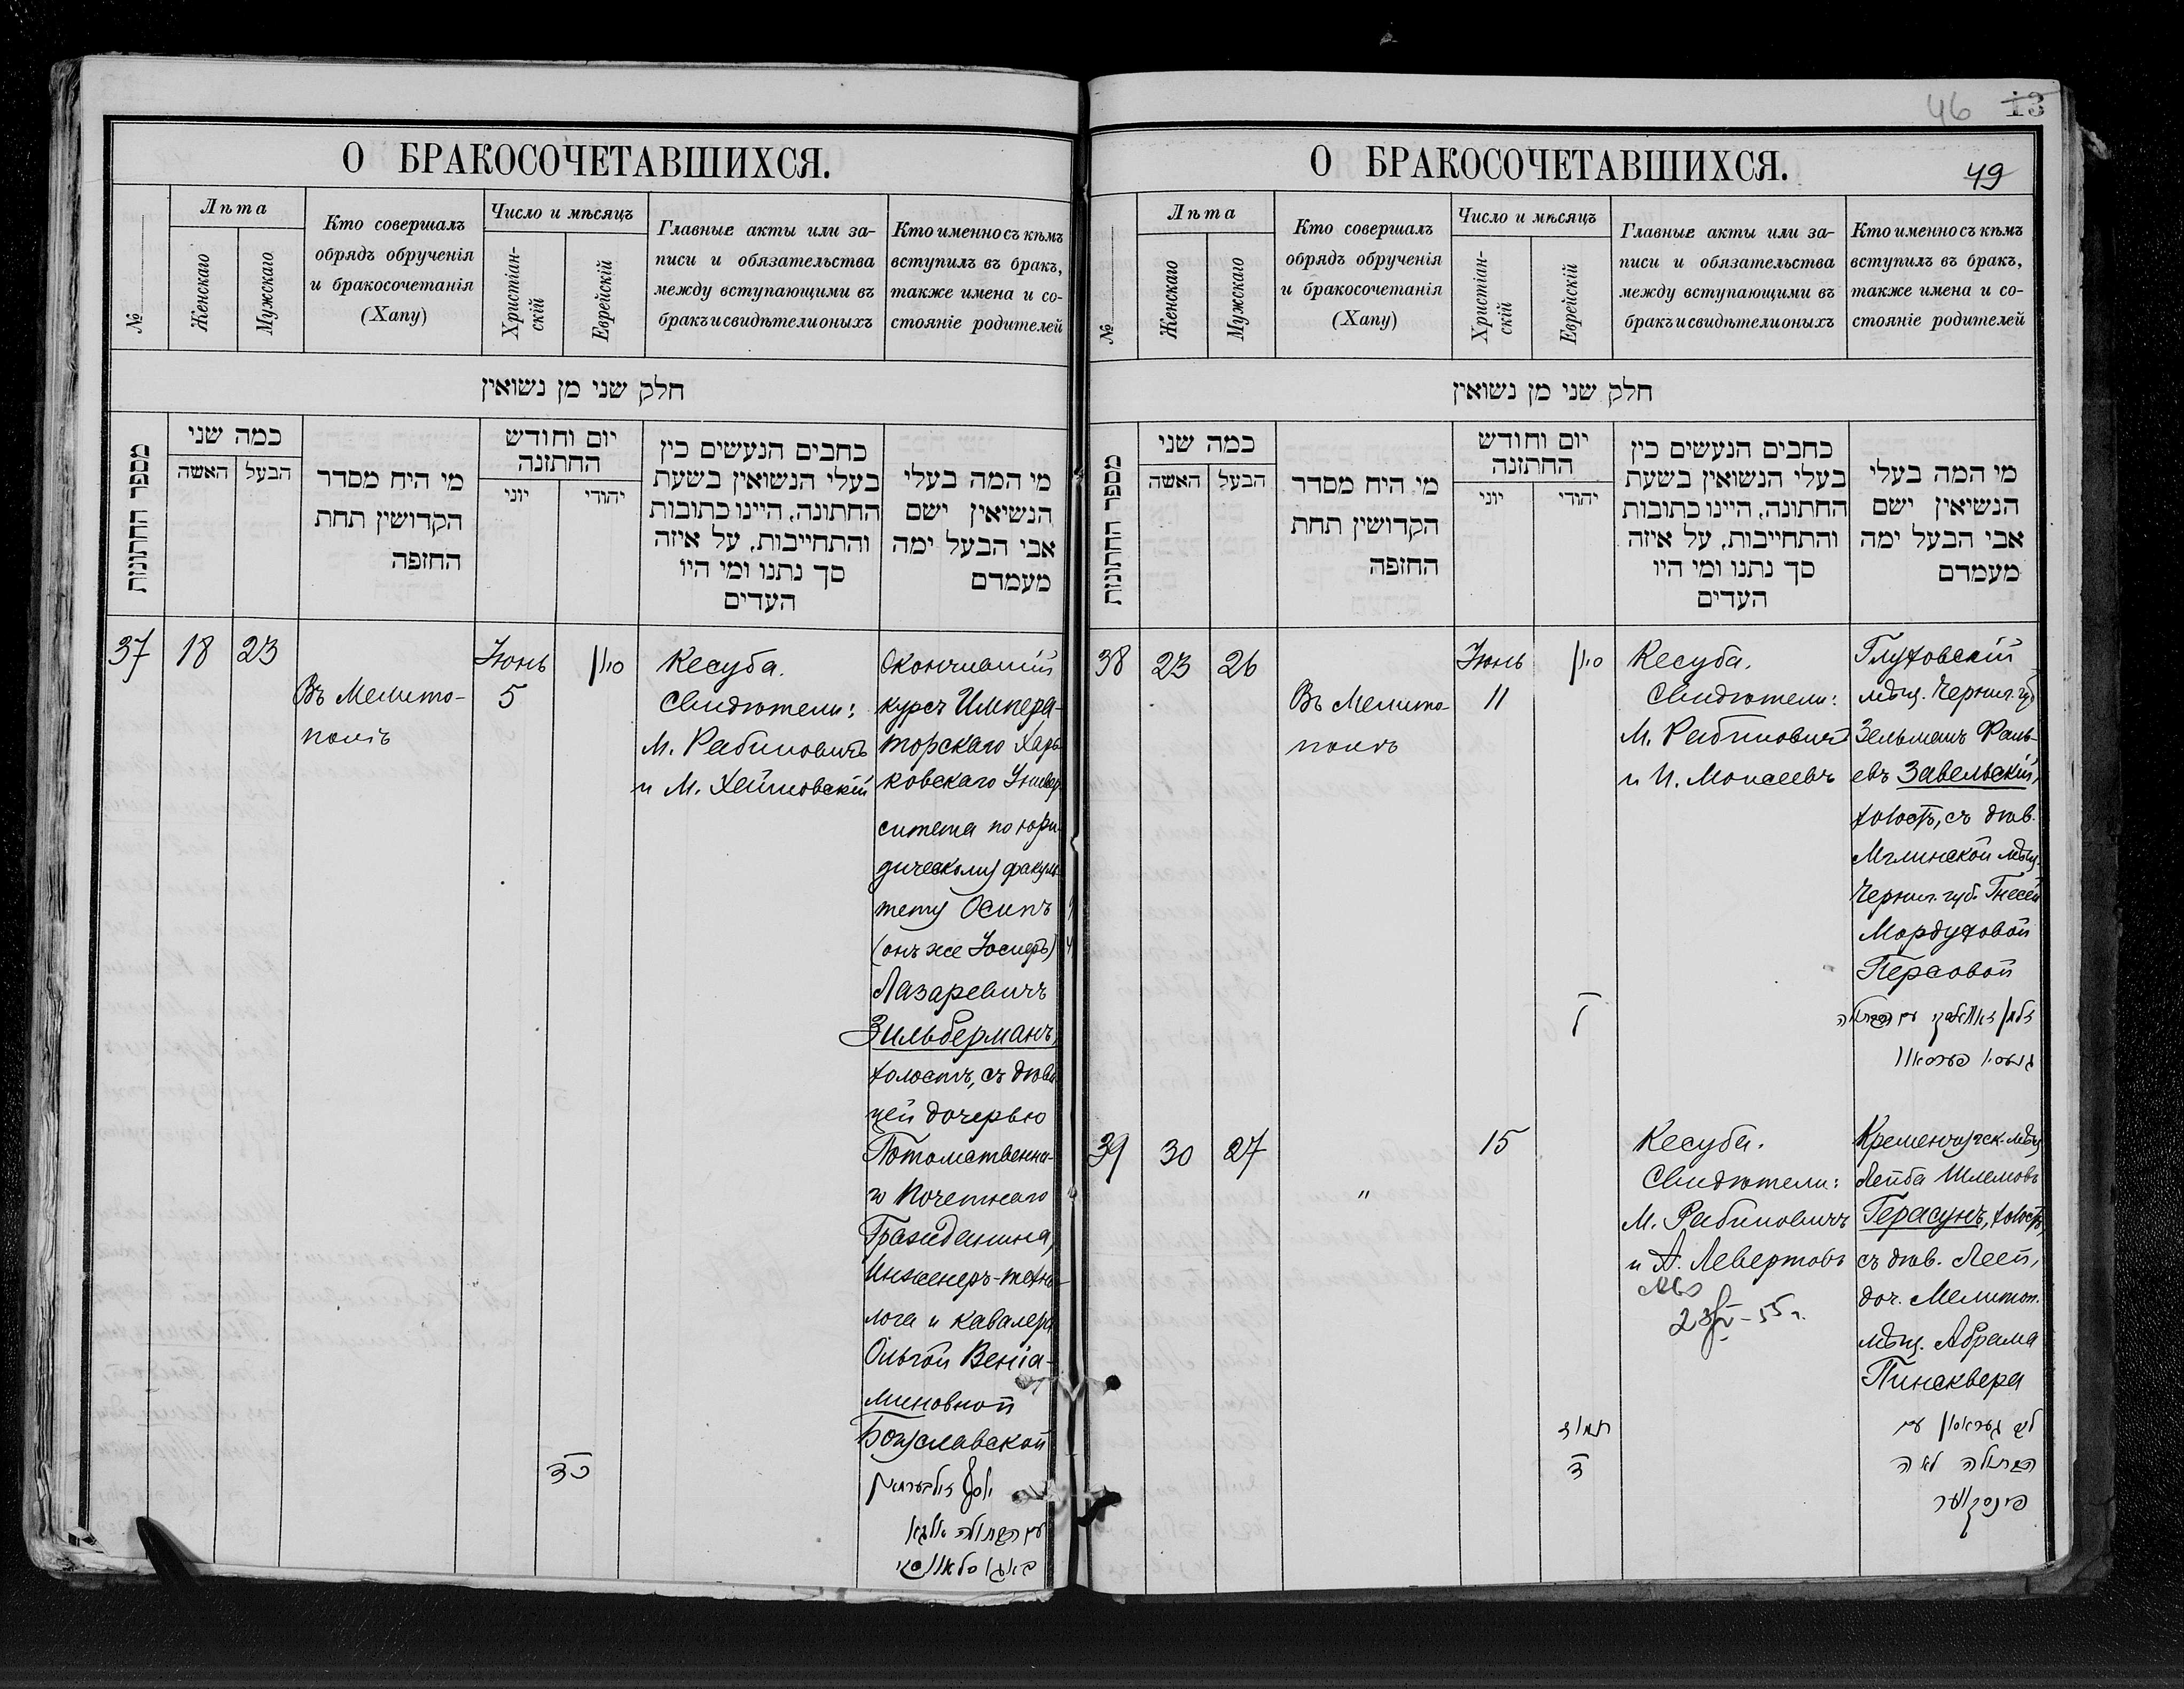 О БРАКОСОЧЕТАВШИХСЯ.
№
Лѣта
Женскаго
Мужскаго
Кто совершалъ
обрядъ обрученія
и бракосочетанія
(Хапу)
Число и мѣсяцъ
Христіан-
скій
Еврейскій
Главные акты или за-
писи и обязательства
между вступающими въ
бракъ и свидѣтели оныхъ
Кто именно съ кѣмъ
вступилъ въ бракъ,
также имена и со-
стояніе родителей
חלק שני מן נשואין
מספר החתונות
כמה שני
האשה
הבעל
מי היח מסדר
הקדושין תחת
החזפה
יום וחודש
החתזנה
יוני
יהודי
כחבים הנעשים כין
בעלי הנשואין בשעת
החתונה, היינו כתובות
והתחייבות, על איזה
סך נתנו ומי היו
העדים
מי המה בעלי
הנשיאין ישם
אבי הבעל ימה
מעמדם
37
18
23
Въ Мелито-
полѣ
Іюнь
5
סיון
כד
Кесуба.
Свидѣтели:
М. Рабиновичъ
и М. Хеймовскій
Окончившій
курсъ Импера-
торскаго Харь-
ковскаго Универ
ситета по юри-
дическому факуль-
тету Осипъ
(онъ же Іосифъ)
Лазаревичъ
Зильберманъ,
холостъ, съ дѣви
цей дочерью
Потомственна-
го Почетнаго
Гражданина,
Инженеръ-техно-
лога и Кавалера
Ольгой Веніа-
миновной
Богуславской
יוסף זילבערמאן
עם הבתולה אלגא
באגוסלאווסקי
46 13
О БРАКОСОЧЕТАВШИХСЯ.
49
№
Лѣта
Женскаго
Мужскаго
Кто совершалъ
обрядъ обрученія
и бракосочетанія
(Хапу)
Число и мѣсяцъ
Христіан-
скій
Еврейскій
Главные акты или за-
писи и обязательства
между вступающими въ
бракъ и свидѣтели оныхъ
Кто именно съ кѣмъ
вступилъ въ бракъ,
также имена и со-
стояніе родителей
חלק שני מן נשואין
מספר החתונות
כמה שני
האשה
הבעל
מי היח מסדר
הקדושין תחת
החזפה
יום וחודש
החתזנה
יוני
יהודי
כחבים הנעשים כין
בעלי הנשואין בשעת
החתונה, היינו כתובות
והתחייבות, על איזה
סך נתנו ומי היו
העדים
מי המה בעלי
הנשיאין ישם
אבי הבעל ימה
מעמדם
38
23
26
Въ Мелито-
полѣ
Іюнь
11
סיון
ל
Кесуба.
Свидѣтели:
М. Рабиновичъ
и И. Моисеевъ
Глуховскій
мѣщ. Черниг. губ
Зельманъ
евъ Завельскій,
холостъ, съ дѣв.
Мглинской мѣщ.
Черниг. губ. Гнесей
Мордуховой
Персовой
זלמן זאוועלסקי עם הבתולה
גנעסי פערסאוו
39
30
27
"
15
תמוז
ד
Кесуба.
Свидѣтели:
М. Рабиновичъ
и А. Левертовъ
23/V - 55 г.
Кременчугск. мѣщ
Лейба Шлемовъ
Герасунъ, холостъ,
съ дѣв. Леей,
доч. Мелитоп.
мѣщ. Абрама
Пинсквера
ליב געראסון עם
הבתולה לאה
פינסקווער